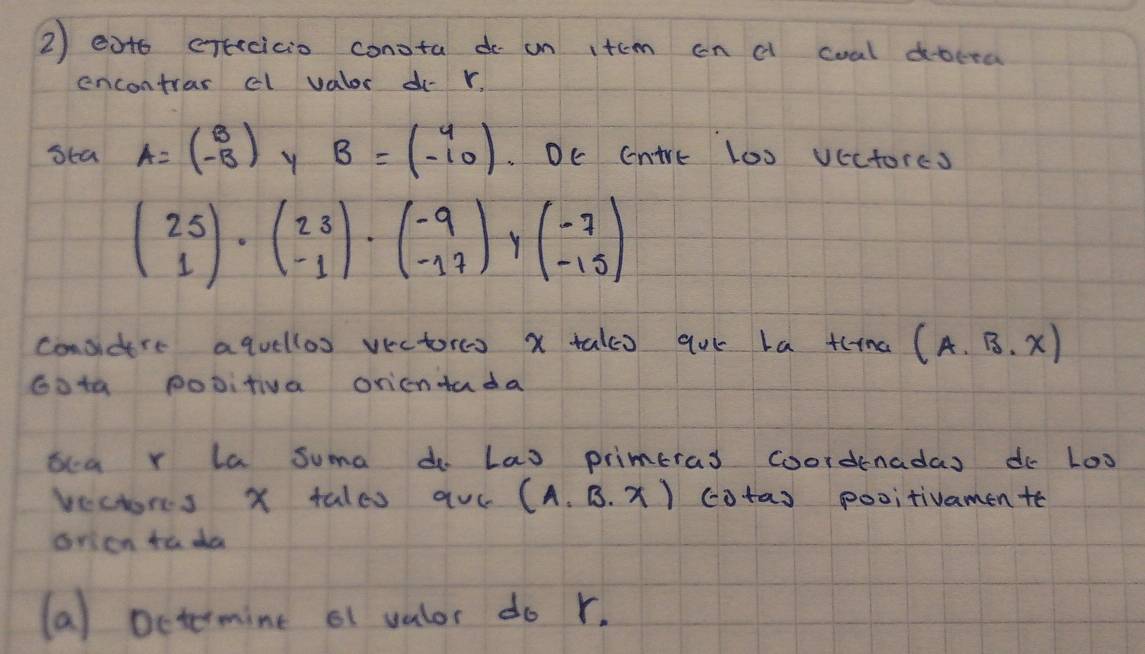 2) este ejercicio consta de un item en el cual debera
encontrar el valor de r.
Sea A = (8 -8) y B = (4 -10). De entre los vectores
(25 1) . (23 -1) . (-9 -17) y (-7 -15)
considere aquellos vectores x tales que la terna (A. B. x)
esta positiva orientada
sea r la suma de las primeras coordenadas de los
vectores x tales que (A. B. x) estas positivamente
orientada
(a) Determine el valor de r.